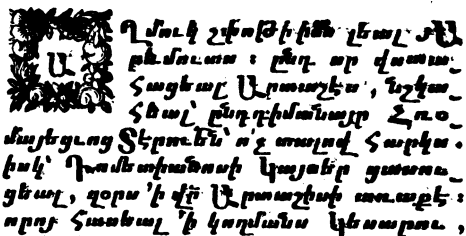 Ա
Ղմուկ շփոթի իմն լեալ յԱ
րևմուտս : ընդ որ վստա֊
հացեալ Արտաշէս , նշկա֊
հեալ՝ ընդդիմանայր Հռօ֊
մայեցւոց Տէրութեն՝ ո՛չ տալով հարկս.
իսկ՝ Դոմետիանոսի Կայսեր ցասու֊
ցեալ, զօրս ՚ի վր Արտաշիսի առաքէ :
որոյ հասեալ ՚ի կողմանս Կեսարու ,